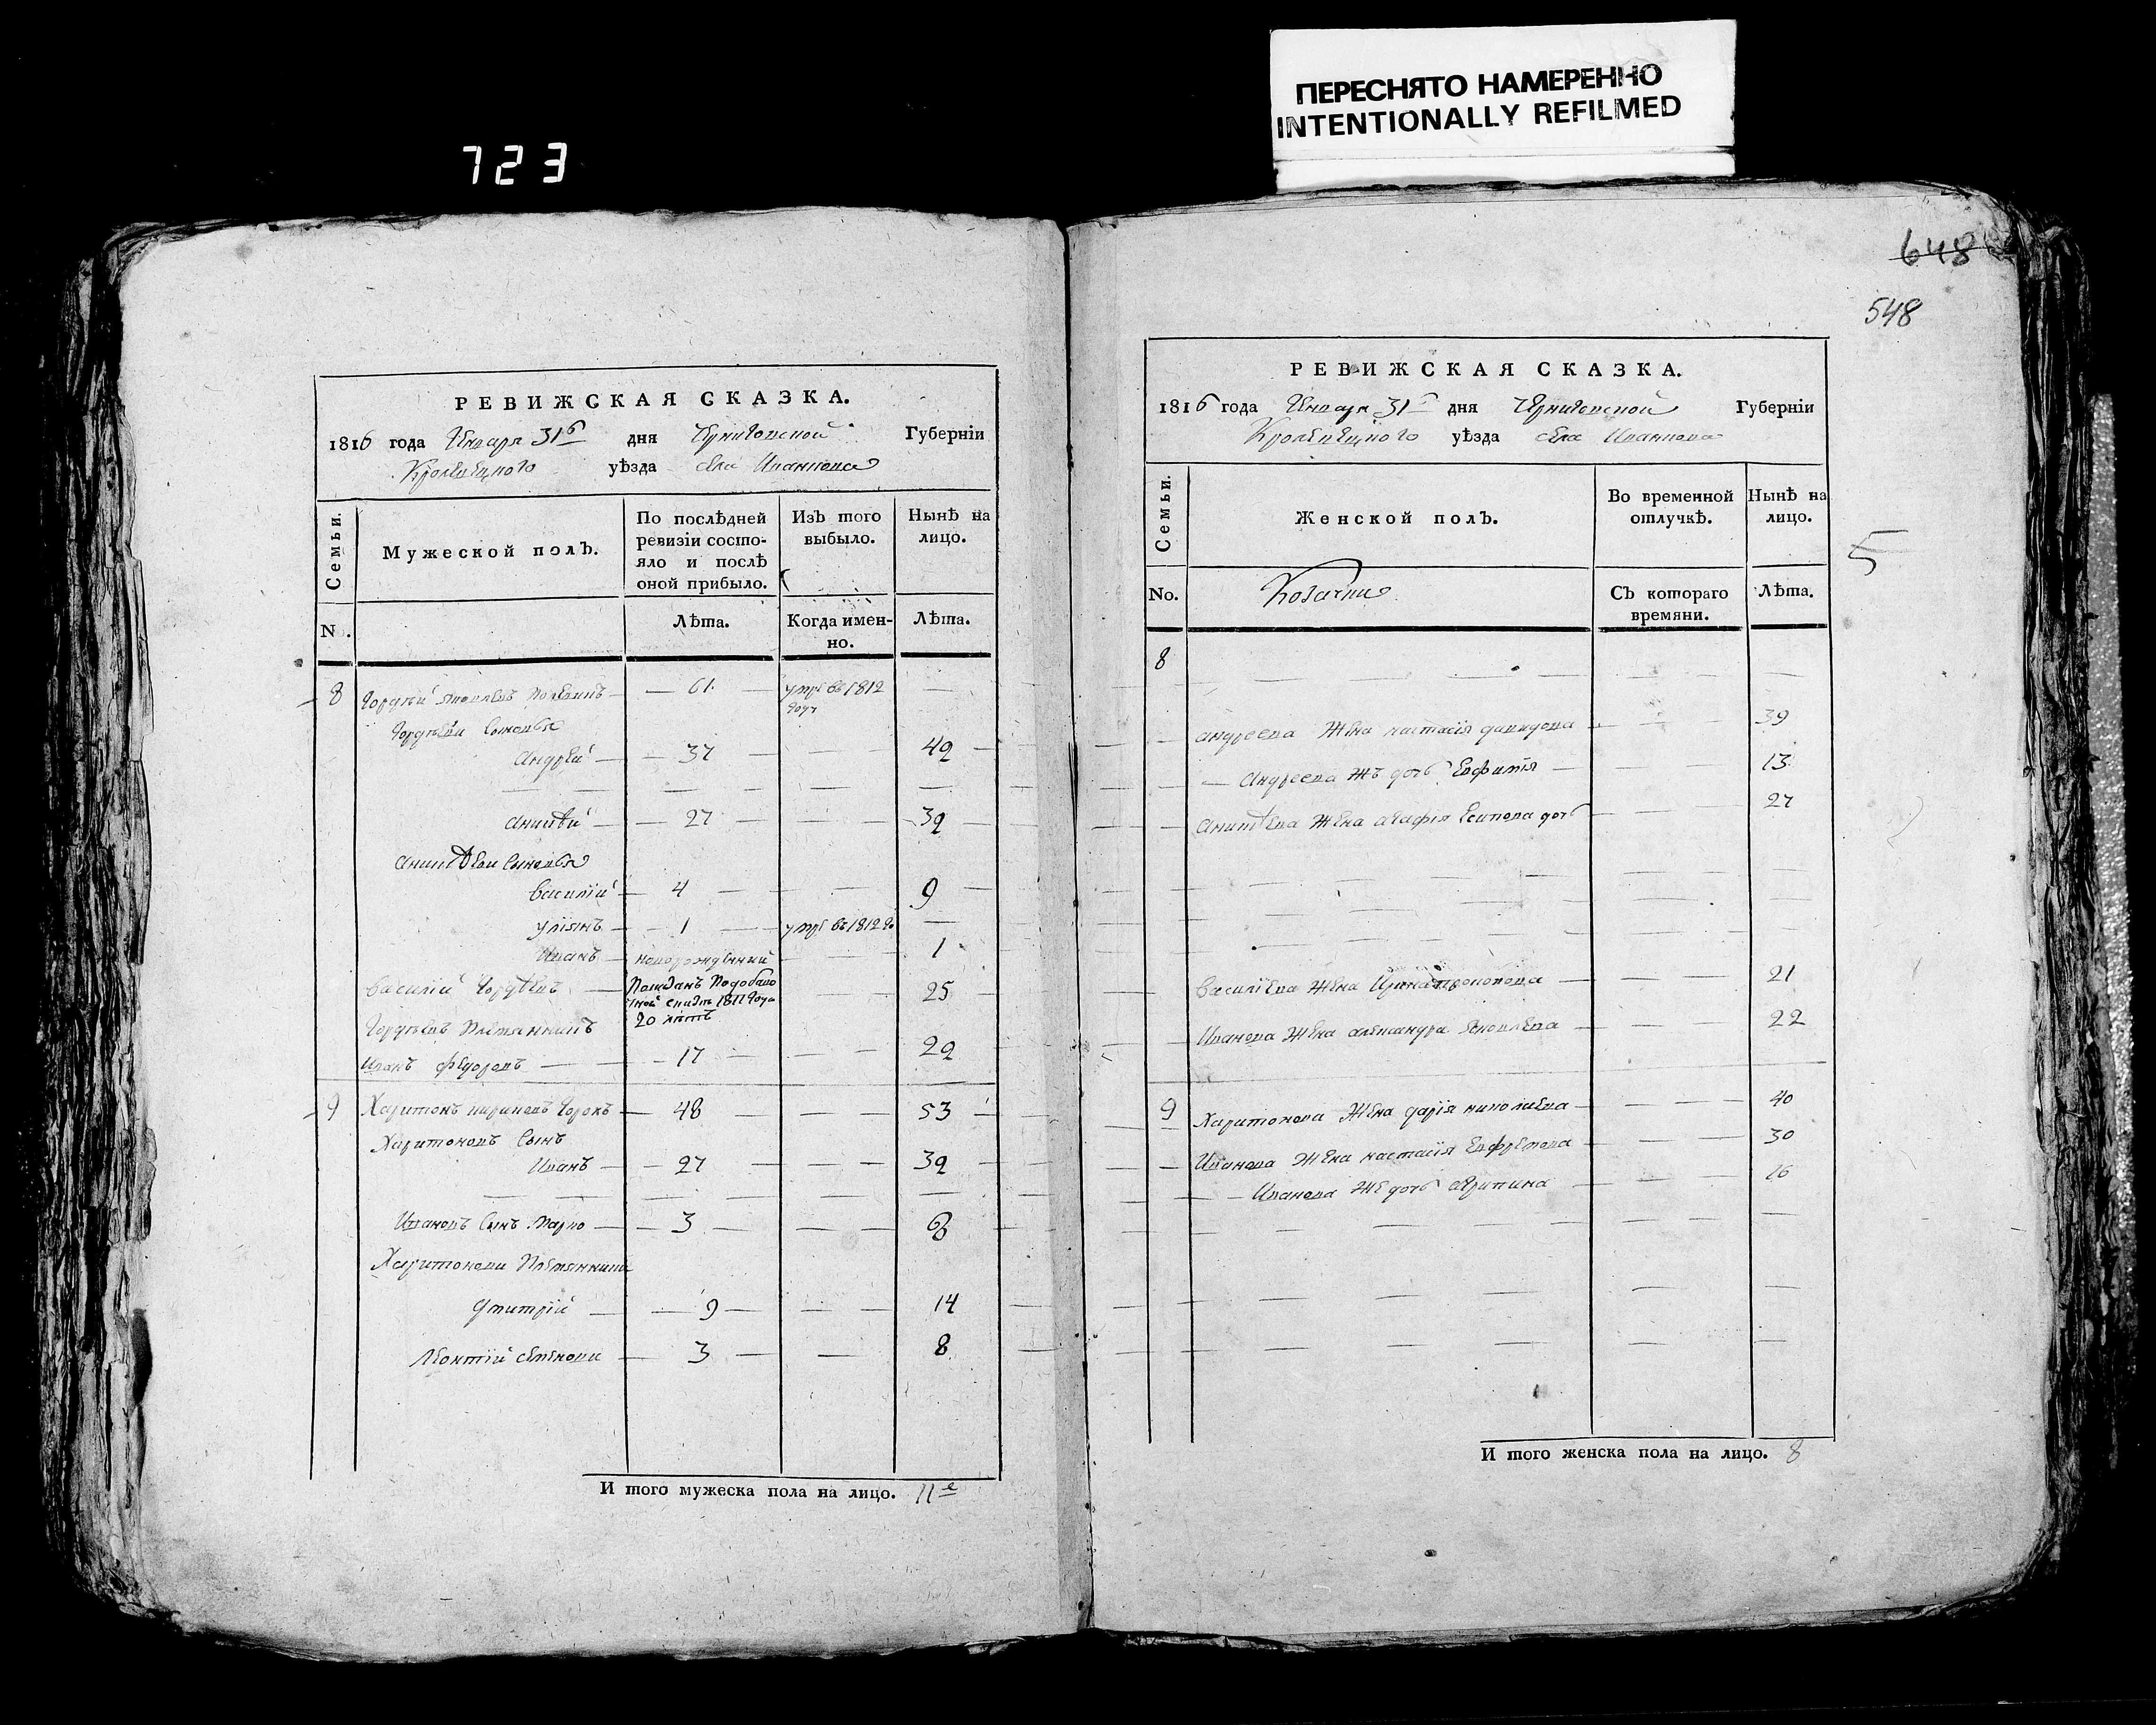 ПЕРЕСНЯТО НАМЕРЕННО
INTENTIONALLY REFILMED
723
648
548
РЕВИЖСКАЯ СКАЗКА.
1816 года Генваря 31го дня Черниговской Губерніи
Кролевецкого уѣзда села
Семьи. Мужеской полъ. По послѣдней ревизіи состояло и послѣ оной прибыло. Изъ того выбыло. Нынѣ на лицо.
No. Лѣта. Когда именно. Лѣта.
8 Гордѣй 61 умре въ 1812
году
Гордѣеви сыновья
Андрей 37 42
27 32
сыновья
Василій 4 9
Уліянъ 1 умре въ 1812 го
Иванъ новорожденний 1
Василій Гордѣевъ 25
1811 года
20 лѣтъ
Гордѣевъ племянникъ
Иванъ Федоровъ 17 22
9 Харитонъ 48 53
Харитоновъ сынъ
Иванъ 27 32
Ивановъ сынъ Марко 3 8
Харитонови племянники
Дмитрій 9 14
Леонтій Семенови 3 8
И того мужеска пола на лицо. 11ть
РЕВИЖСКАЯ СКАЗКА.
1816 года Генваря 31го дня Черниговской Губерніи
Кролевецкого уѣзда села
Семьи. Женской полъ. Во временной отлучкѣ. Нынѣ на лицо.
5
No. Козачки Съ котораго времяни. Лѣта.
8
Андреева жена настасія давидова 39
Андреева жъ дочь Евфимія 13
жена агафія Есипова дочь 27
Василіева жена Ирина 21
Иванова жена александра Яковлева 22
9 Харитонова жена дарія николаева 40
Иванова жена настасія Евфремова 30
Иванова же дочь агрипина 16
И того женска пола на лицо. 8